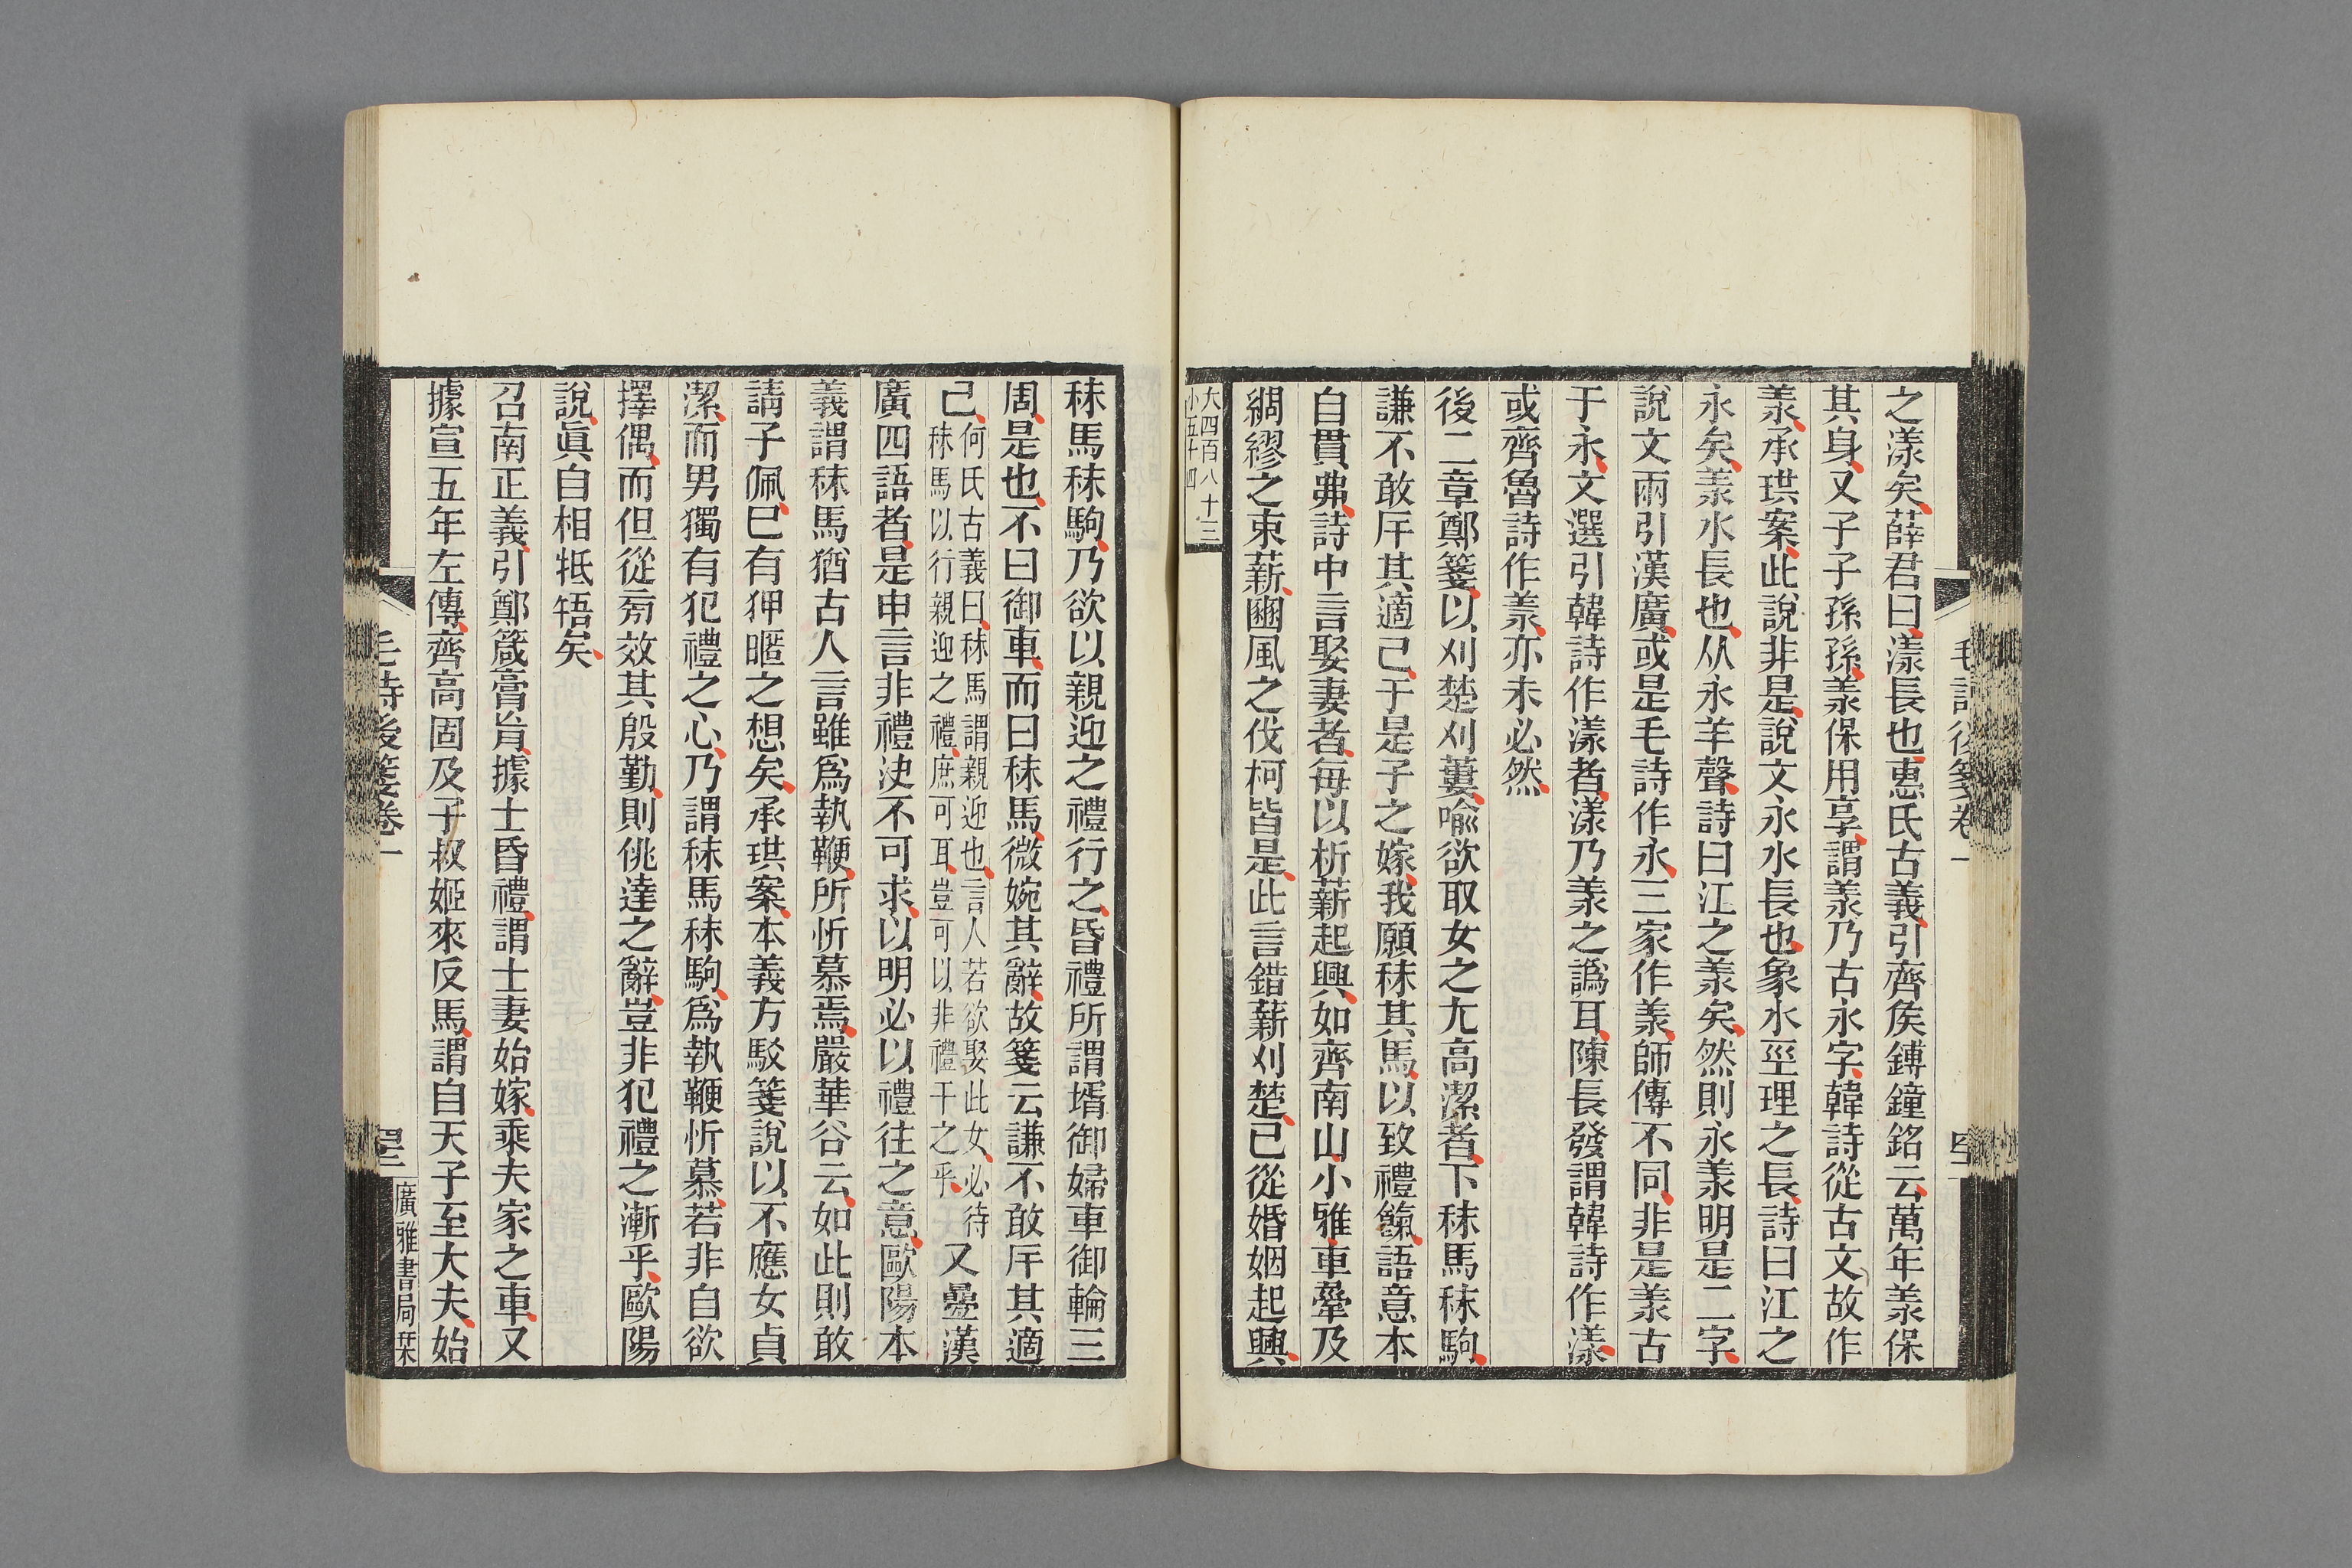 毛詩後箋卷一
之漾矣薛君曰漾長也惠氏古義引齊矦鎛鐘銘云萬年羕保
其身又子子孫孫羕保用享謂羕乃古永字韓詩從古文故作
羕承珙案此說非是說文永水長也象水巠理之長詩曰江之
永矣羕水長也从永羊聲詩曰江之羕矣然則永羕明是二字
說文兩引漢廣或是毛詩作永三家作羕師傳不同非是羕古
于永文選引韓詩作漾者漾乃羕之譌耳陳長發謂韓詩作漾
或齊魯詩作羕亦未必然
後二章鄭箋以刈楚刈蔞喻欲取女之尢高潔者下秣馬秣駒
謙不敢斥其適己于是子之嫁我願秣其馬以致禮餼語意本
自貫弗詩中言娶妻者每以析薪起興如齊南山小雅車舝及
綢繆之束薪豳風之伐柯皆是此言錯薪刈楚已從婚姻起興
大四百八十三
小五十四
秣馬秣駒乃欲以親迎之禮行之昏禮所謂壻御婦車御輪三
周是也不曰御車而曰秣馬微婉其辭故箋云謙不敢斥其適
己
何氏古義曰秣馬謂親迎也言人若欲娶此女必待
秣馬以行親迎之禮庶可耳豈可以非禮干之乎
又曡漢
廣四語者是申言非禮決不可求以明必以禮往之意歐陽本
義謂秣馬猶古人言雖爲執鞭所忻慕焉嚴華谷云如此則敢
請子佩巳有狎暱之想矣承珙案本義方駁箋說以不應女貞
潔而男獨有犯禮之心乃謂秣馬秣駒爲執鞭忻慕若非自欲
擇偶而但從旁效其殷勤則佻達之辭豈非犯禮之漸乎歐陽
說眞自相牴牾矣
召南正義引鄭箴膏肓據士昏禮謂士妻始嫁乘夫家之車又
據宣五年左傳齊高固及子叔姬來反馬謂自天子至大夫始
毛詩後箋卷一
廣雅書局栞